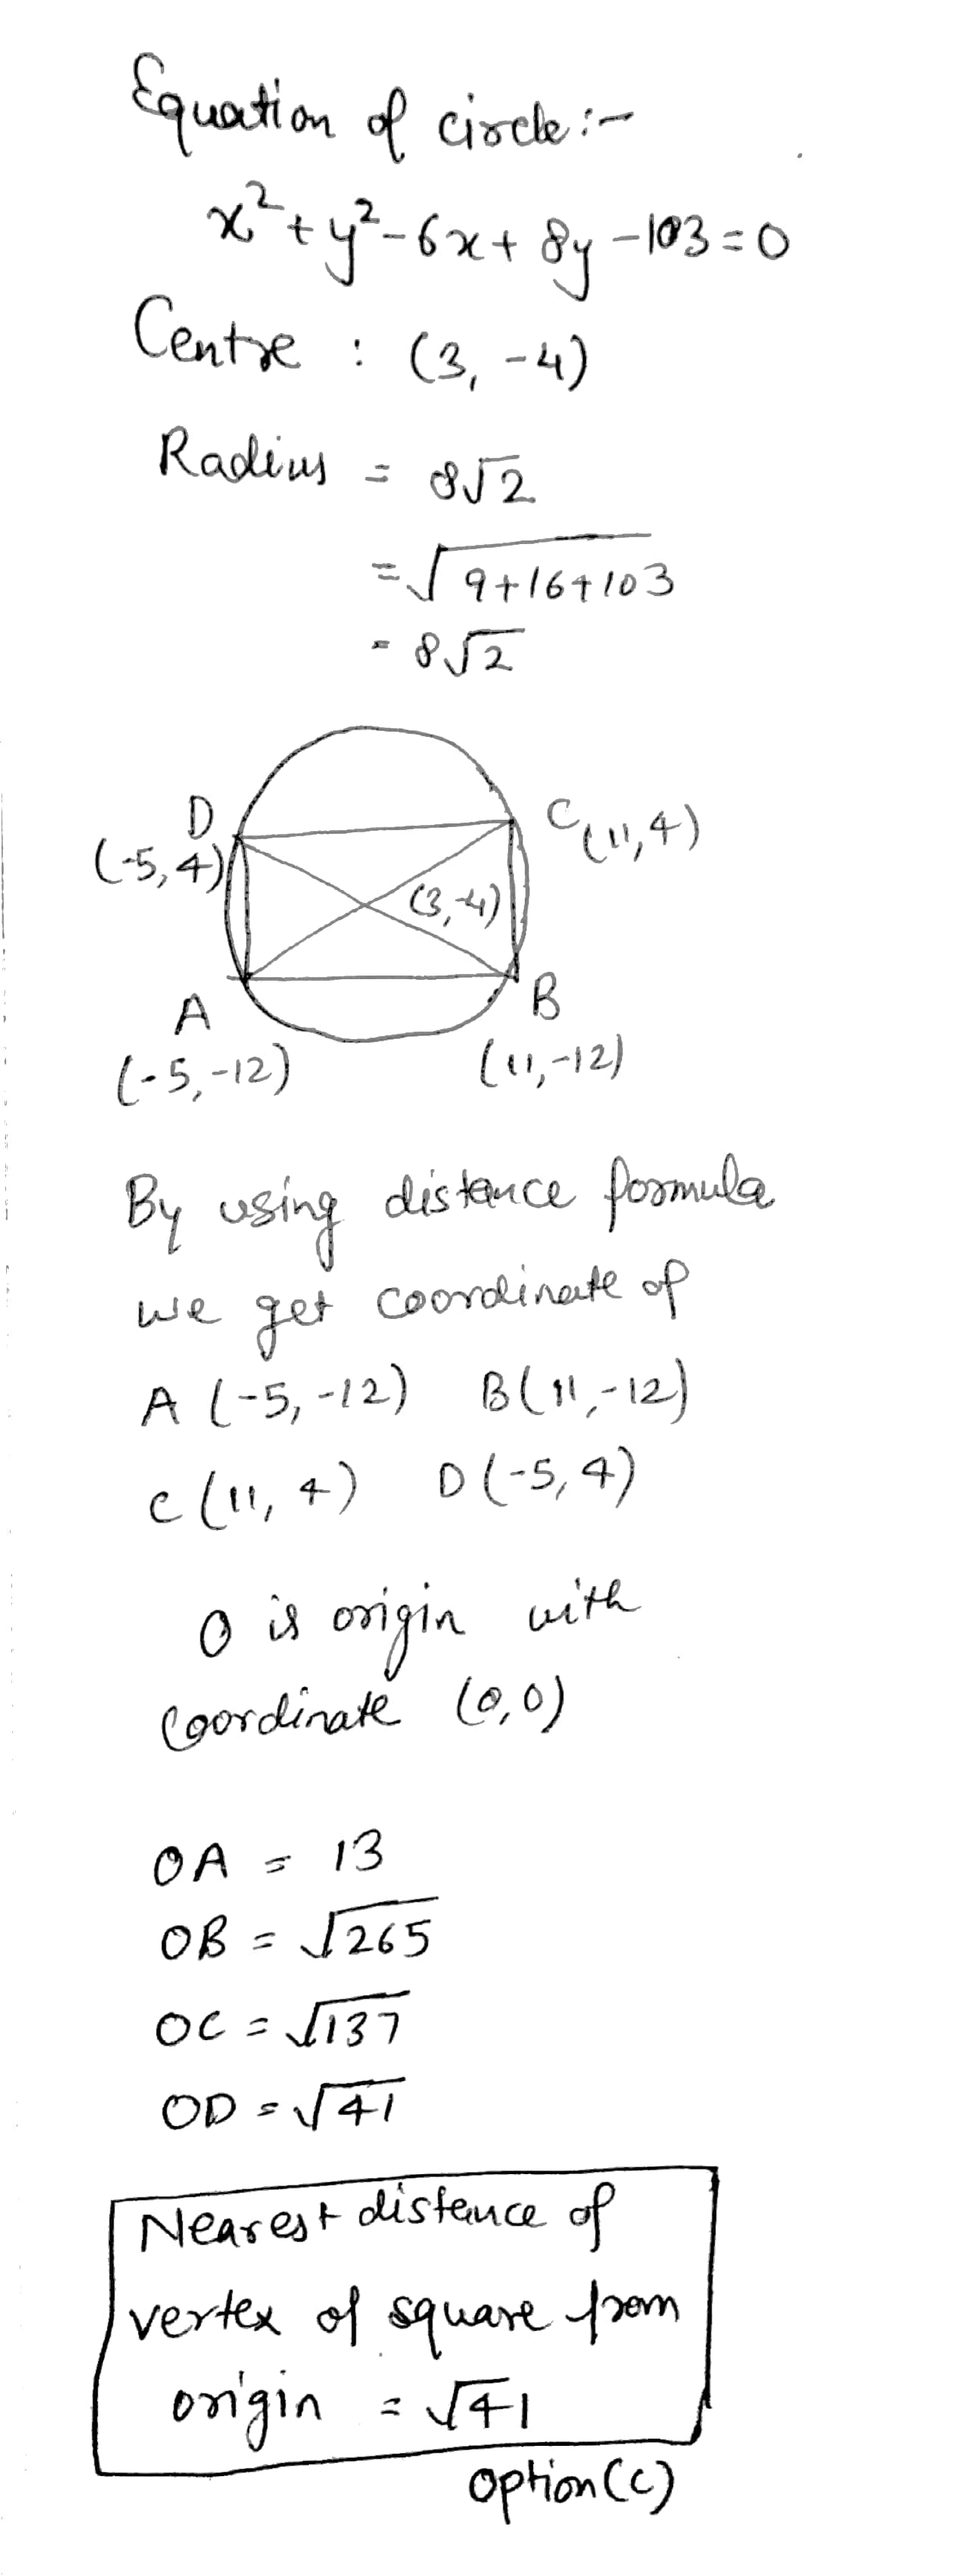 Equation of circle :-
x²+y²-6x+8y-103=0
Centre : (3, -4)
Radius = 8√2
=√9+16+103
= 8√2
D
C(11,4)
(-5,4)
(3,-4)
A
B
(-5,-12)
(11,-12)
By using distance formula
we get coordinate of
A (-5,-12) B(11,-12)
C (11, 4) D(-5,4)
O is origin with
Coordinate (0,0)
OA = 13
OB = √265
OC = √137
OD = √41
Nearest distance of
vertex of square from
origin = √41
option (c)